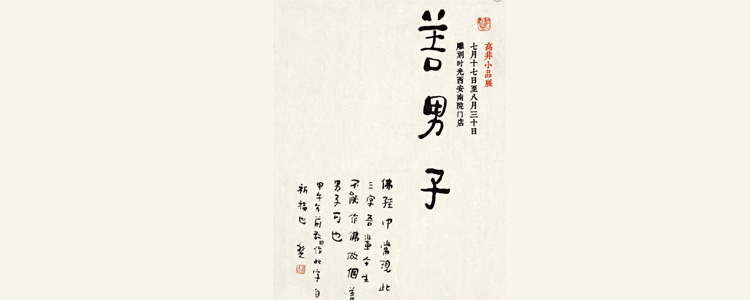 高非小品展
七月十七日至八月三十日
雕刻时光西安南院门店
善男子
佛經中常現此
三字吾輩今生
不能作佛做個善
男子可也
甲午年前數日作此字自
祈福也